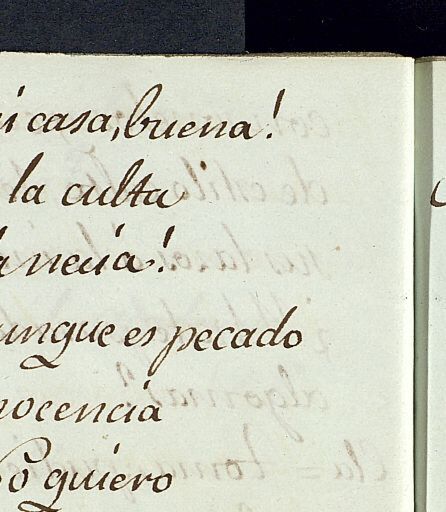 i casa, buena!
la culta
a necia!
unque es pecado
nocencia
Yo quiero